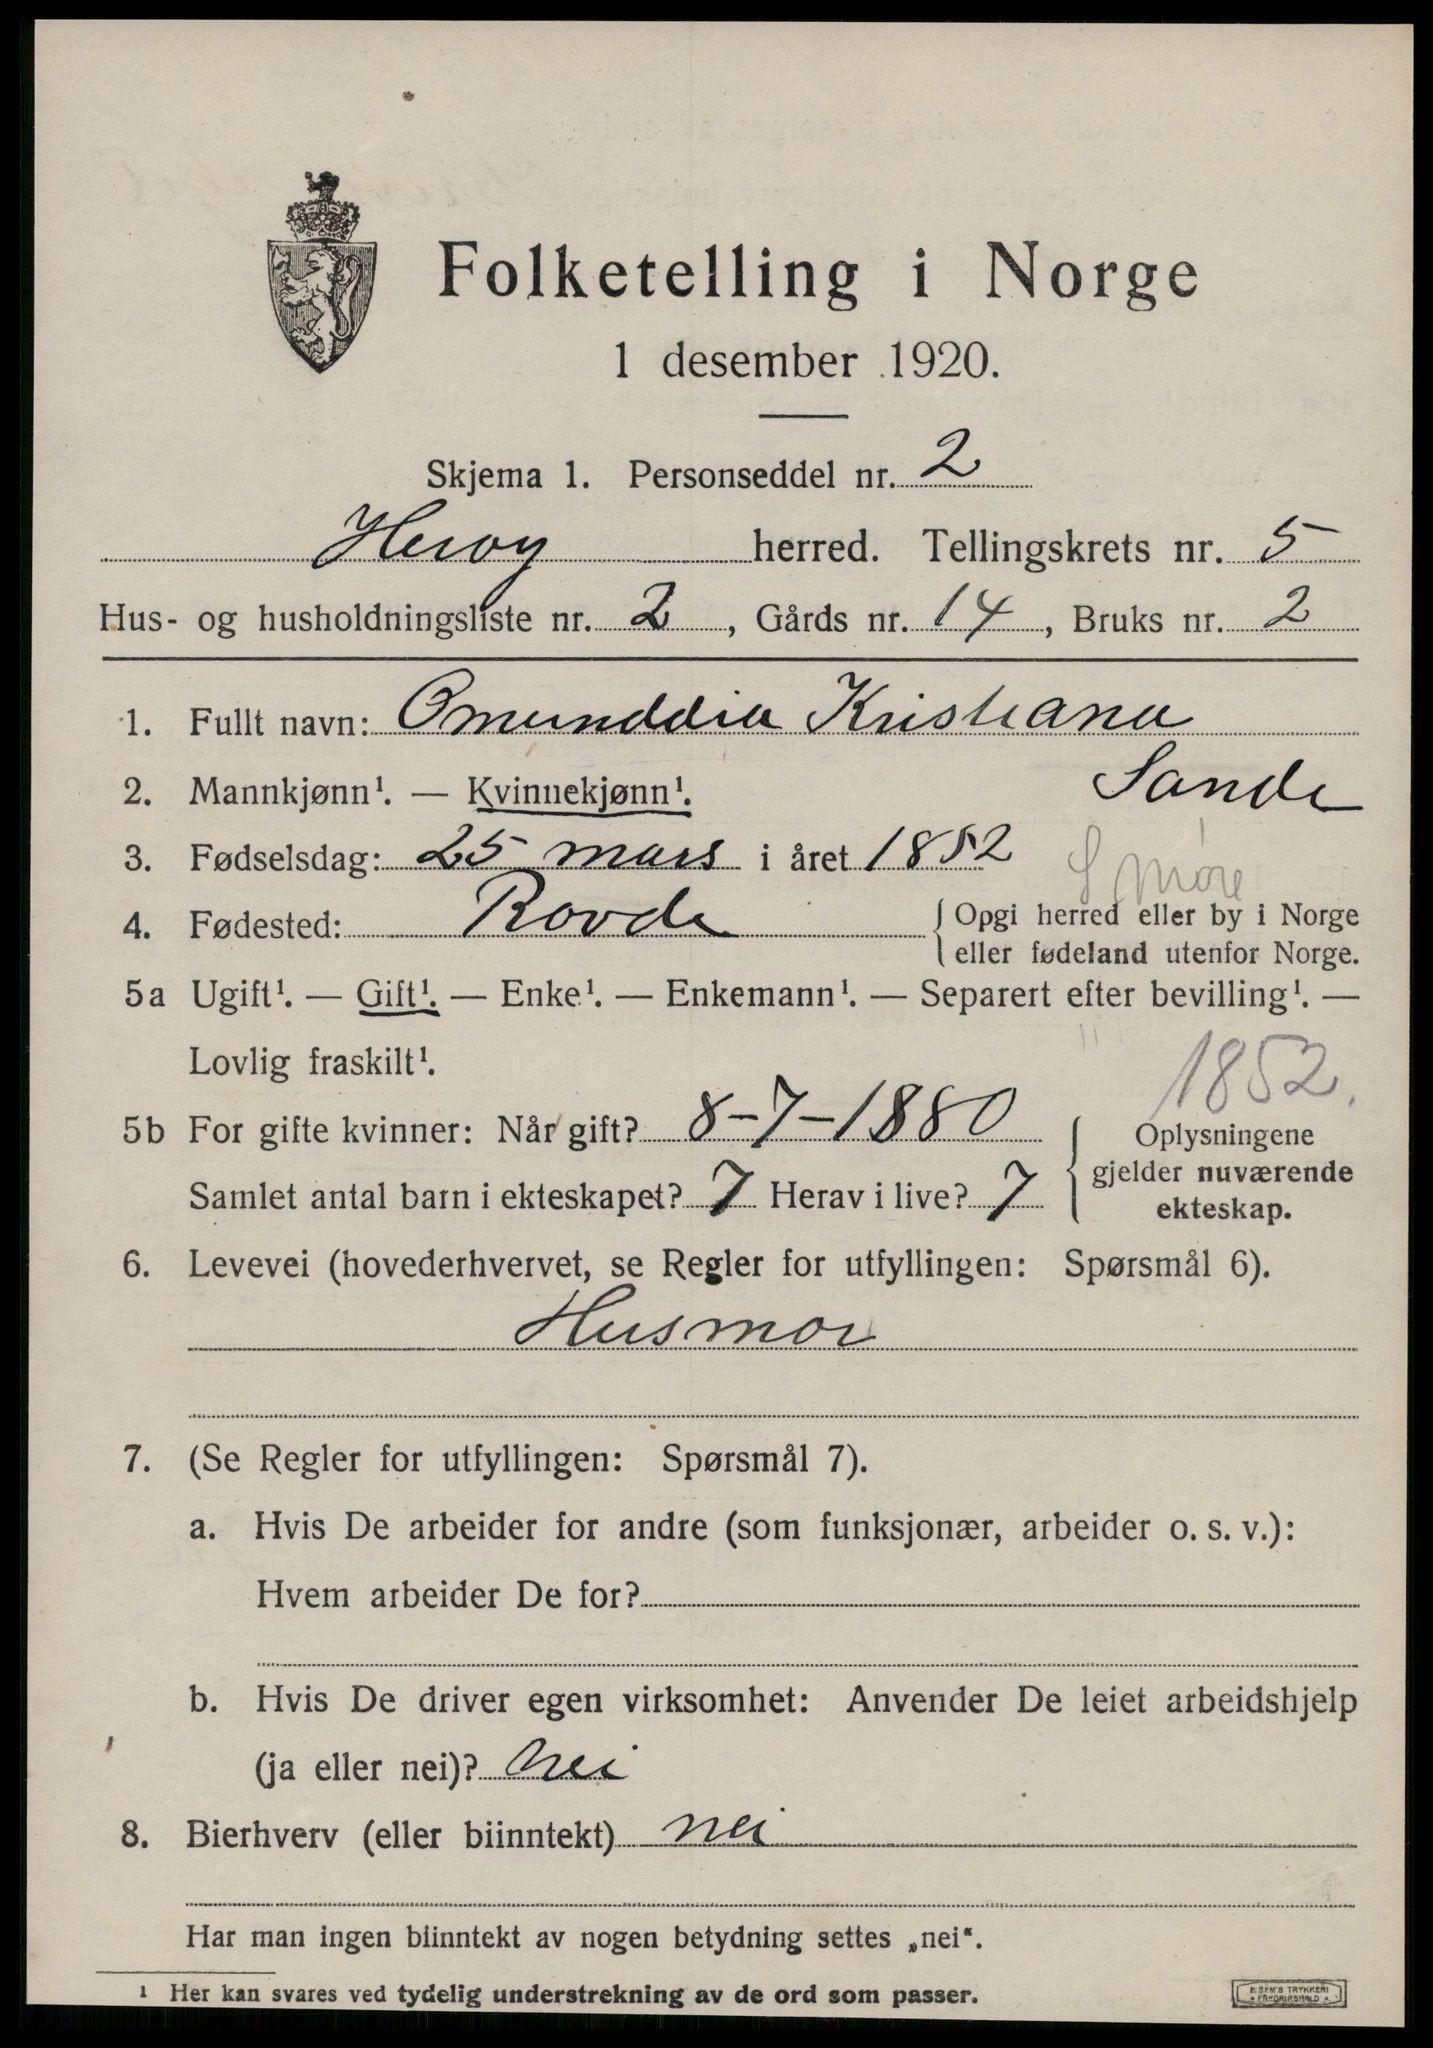 Folketelling i Norge
1 desember 1920.
Skjema 1. Personseddel nr. 2
Herøy herred. Tellingskrets nr. 5
Hus- og husholdningsliste nr. 2, Gårds nr. 14, Bruks nr. 2
1. Fullt navn: Omunddia Kristiana
Sande
2. Mannkjønn¹. — Kvinnekjønn¹.
3. Fødselsdag: 25 mars i året 1852
S Møre
4. Fødested: Rovde { Opgi herred eller by i Norge
eller fødeland utenfor Norge.
5a Ugift¹. — Gift¹. — Enke¹. — Enkemann¹. — Separert efter bevilling¹. —
Lovlig fraskilt¹.
1852.
5b For gifte kvinner: Når gift? 8-7-1880
Samlet antal barn i ekteskapet? 7 Herav i live? 7
{ Oplysningene
gjelder nuværende
ekteskap.
6. Levevei (hovederhvervet, se Regler for utfyllingen: Spørsmål 6).
Husmor
7. (Se Regler for utfyllingen: Spørsmål 7).
a. Hvis De arbeider for andre (som funksjonær, arbeider o. s. v.):
Hvem arbeider De for?
b. Hvis De driver egen virksomhet: Anvender De leiet arbeidshjelp
(ja eller nei)? nei
8. Bierhverv (eller biinntekt) nei
Har man ingen biinntekt av nogen betydning settes „nei“.
¹ Her kan svares ved tydelig understrekning av de ord som passer.
E. SEM'S TRYKKERI
FREDRIKSHALD